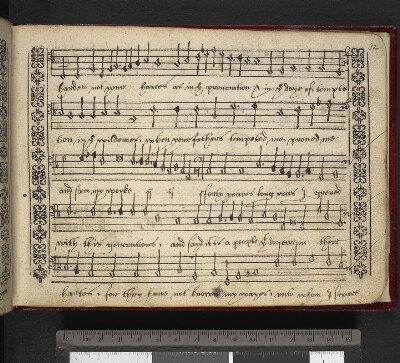 32
harden not your hartes as in yͤ provocation & in yͤ daye of tempta
tion in yͤ wildernes; when your fathers tempted me, proved me
and saw my works ij ij fforty yeares long was I greved
with this generation; and sayd it is a people yͭ do err in their
hartes; for they have not knowne my wayes, unto whom I sware